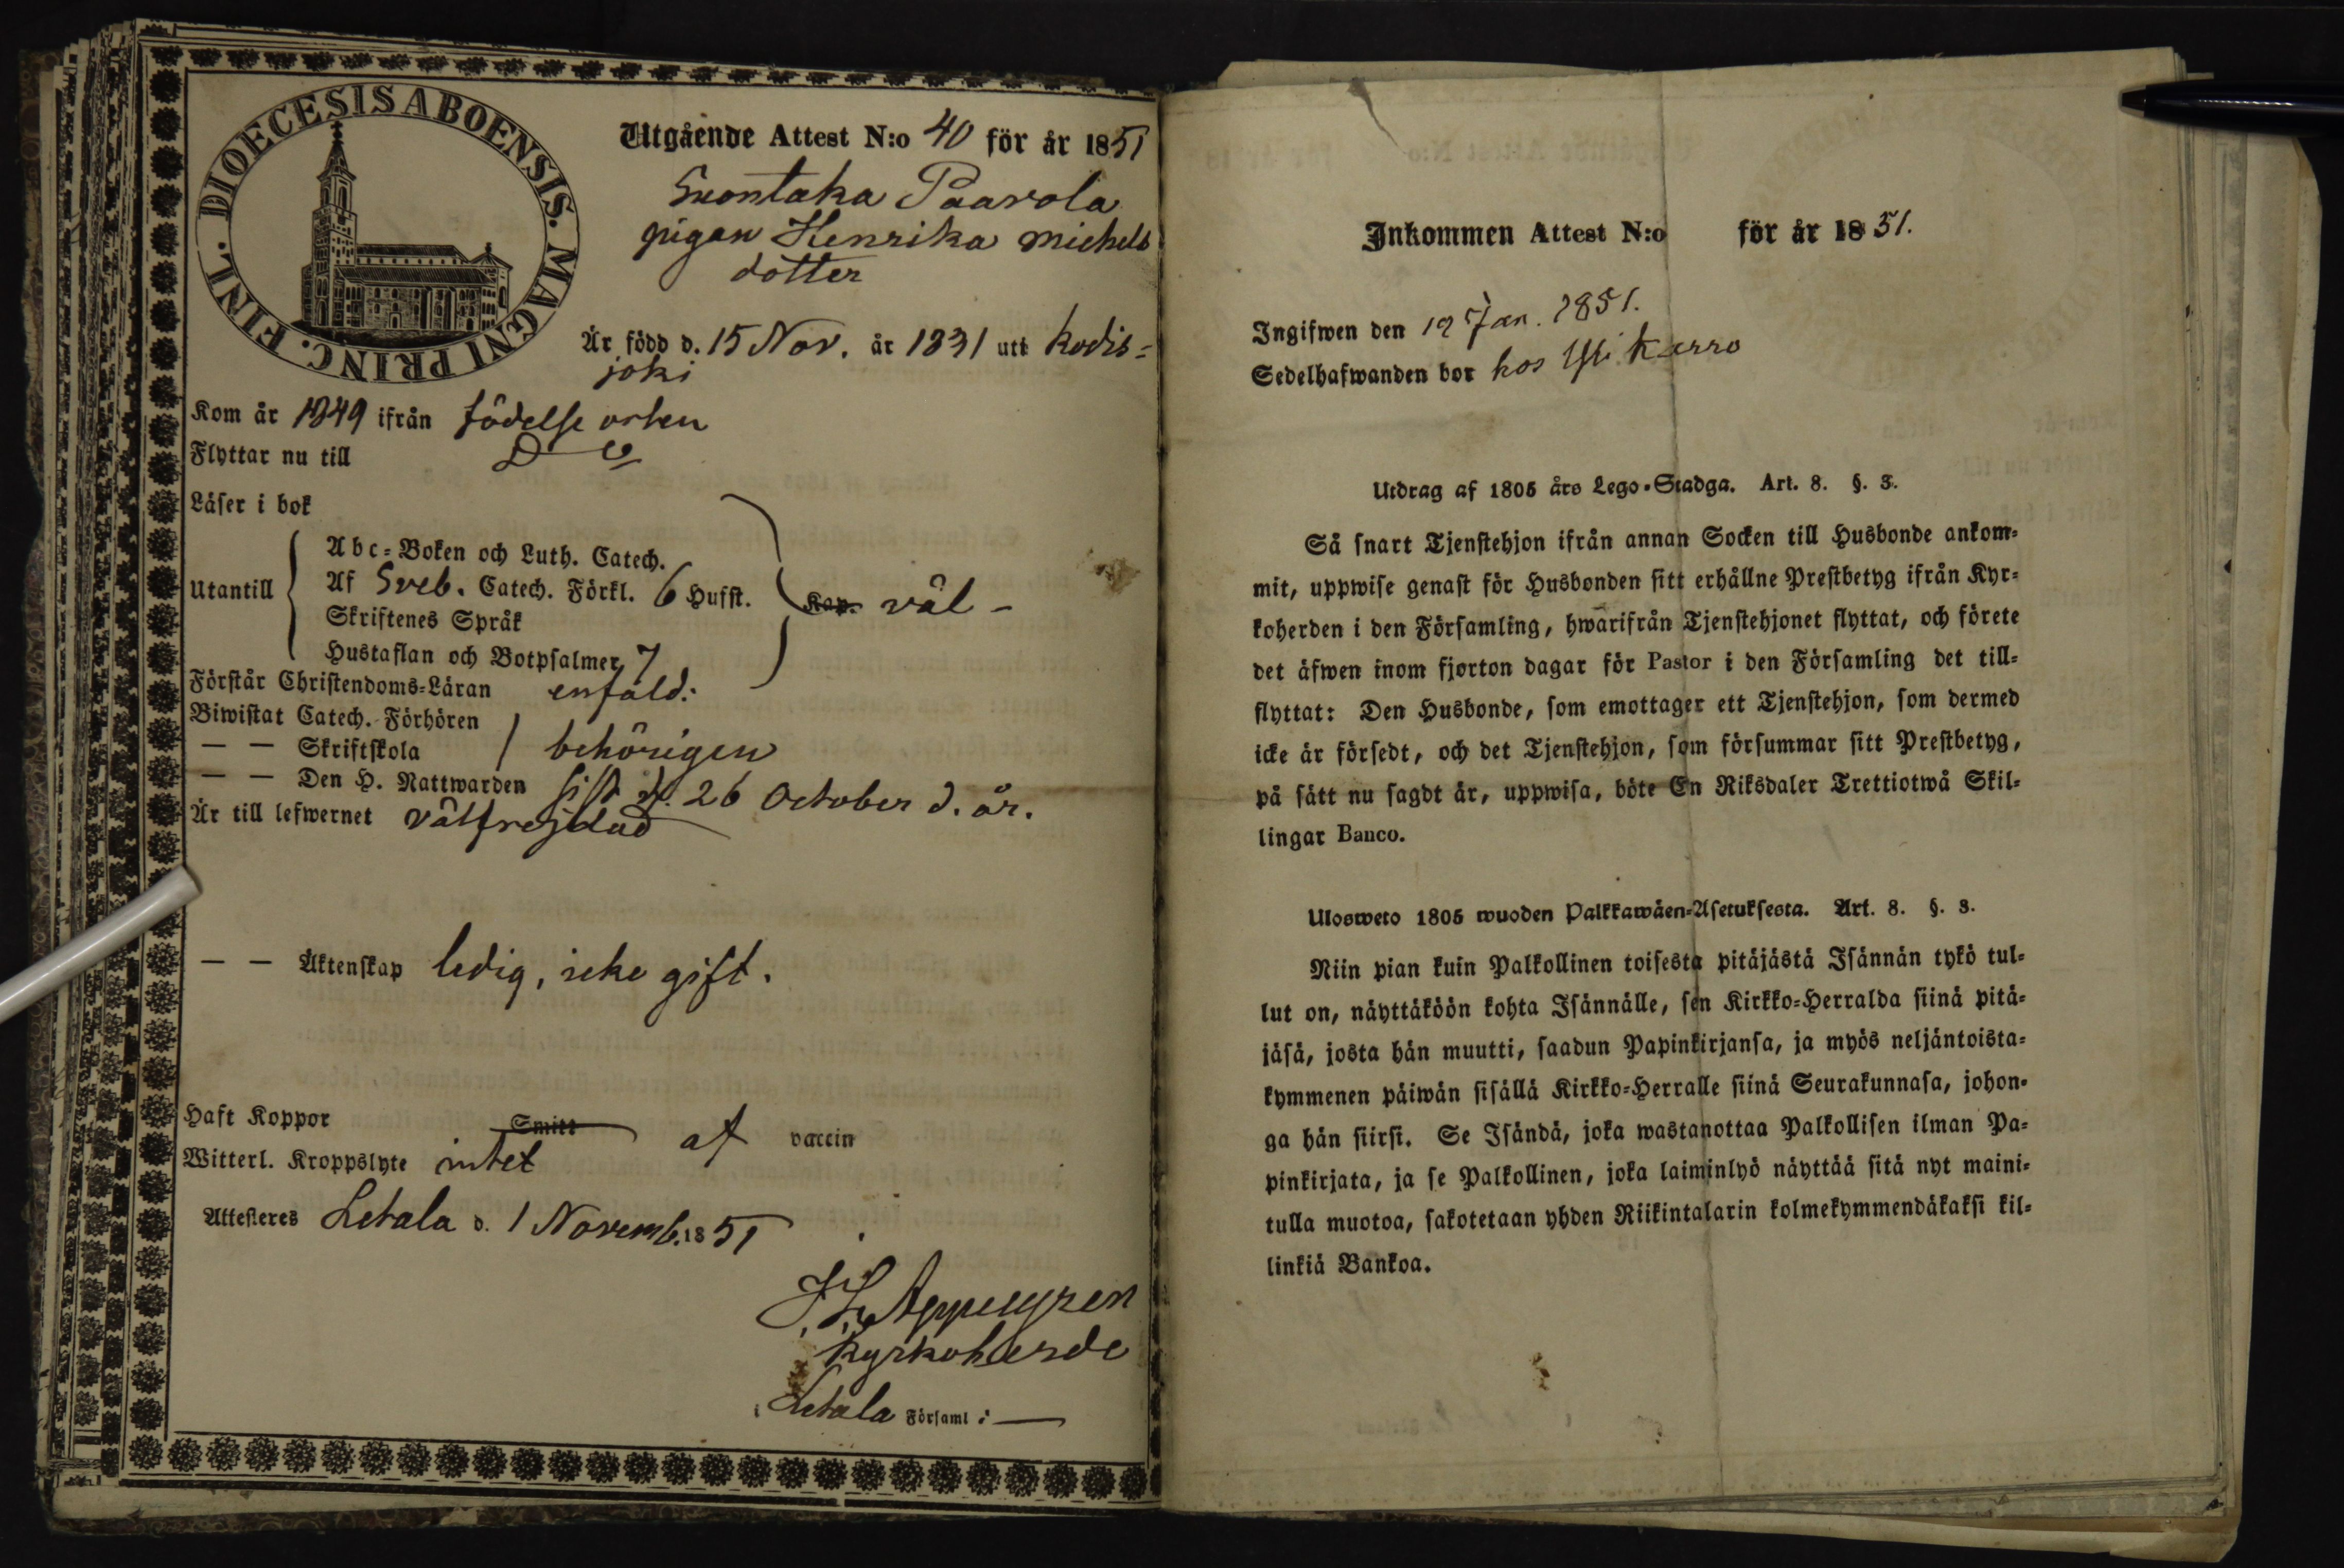 DIOECESIS ABOENSIS. MAGNI PRINC. FINL.
Utgående Attest N:o 40 för år 1851
Suontaka Paavola
pigan Henrika Michels
dotter
Är född d. 15 Nov. år 1831 uti Kodis=
joki
Kom år 1849 ifrån födelse orten
Flyttar nu till D—o
Läser i bok
Utantill
Abc=Boken och Luth. Catech.
Af Sveb. Catech. Förkl. 6 Hufst. Kap. väl -
Skriftenes Språk
Hustaflan och Botpsalmer 7
Förstår Christendoms=Läran enfald:
Biwistat Catech. Förhören
— — Skriftskola behörigen
— — Den H. Nattwarden sist d. 26 October d. år.
Är till lefwernet välfrejdad
— — Äktenskap ledig, icke gift.
Haft Koppor Smitt af vaccin
Witterl. Kroppslyte intet
Attesteres Letala d. 1 Novemb. 1851
Kyrkoherde
i Letala Församl:
Inkommen Attest N:o för år 1851.
Ingifwen den 19 Jan. 1851.
Sedelhafwanden bor hos
Utdrag af 1805 års Lego-Stadga. Art. 8. §. 3.
Så snart Tjenstehjon ifrån annan Socken till Husbonde ankom=
mit, uppwise genast för Husbonden sitt erhållne Prestbetyg ifrån Kyr=
koherden i den Församling, hwarifrån Tjenstehjonet flyttat, och förete
det äfwen inom fjorton dagar för Pastor i den Församling det till=
flyttat: Den Husbonde, som emottager ett Tjenstehjon, som dermed
icke är försedt, och det Tjenstehjon, som försummar sitt Prestbetyg,
på sätt nu sagdt är, uppwisa, böte En Riksdaler Trettiotwå Skil=
lingar Banco.
Ulosweto 1805 wuoden Palkkawäen=Asetuksesta. Art. 8. §. 3.
Niin pian kuin Palkollinen toisesta pitäjästä Isännän tykö tul=
lut on, näyttäköön kohta Isännälle, sen Kirkko=Herralda siinä pitä=
jäsä, josta hän muutti, saadun Papinkirjansa, ja myös neljäntoista=
kymmenen päiwän sisällä Kirkko=Herralle siinä Seurakunnasa, johon=
ga hän siirsi. Se Isändä, joka wastanottaa Palkollisen ilman Pa=
pinkirjata, ja se Palkollinen, joka laiminlyö näyttää sitä nyt maini=
tulla muotoa, sakotetaan yhden Riikintalarin kolmekymmendäkaksi kil=
linkiä Bankoa.